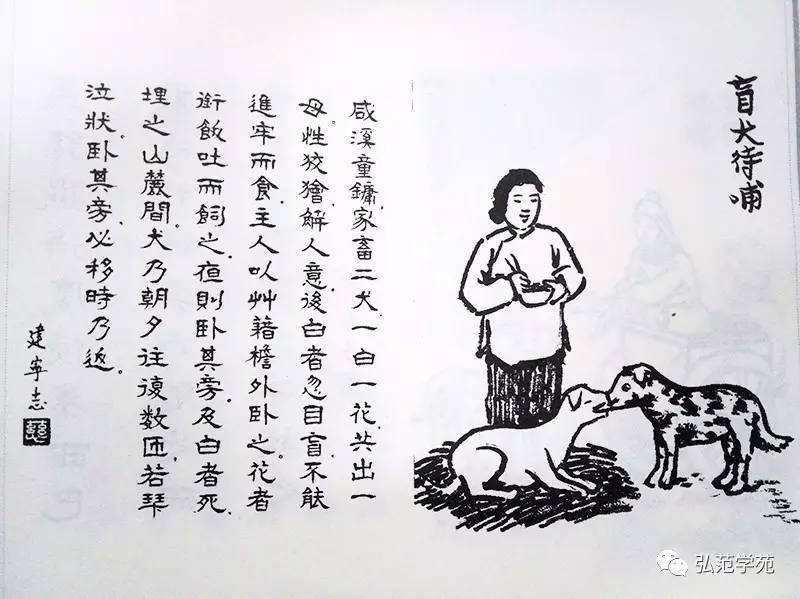 盲犬待哺
咸溪童鏞、家畜二犬、一白一花、共出一
母。性狡獪、解人意。後白者忽目盲、不能
進牢而食、主人以艸藉檐外臥之。花者
銜飯吐而飼之、夜則臥其旁、及白者死、
埋之山麓間。犬乃朝夕往復數匝、若哭
泣狀。臥其旁、必移時乃返。
建寧志
弘范学苑